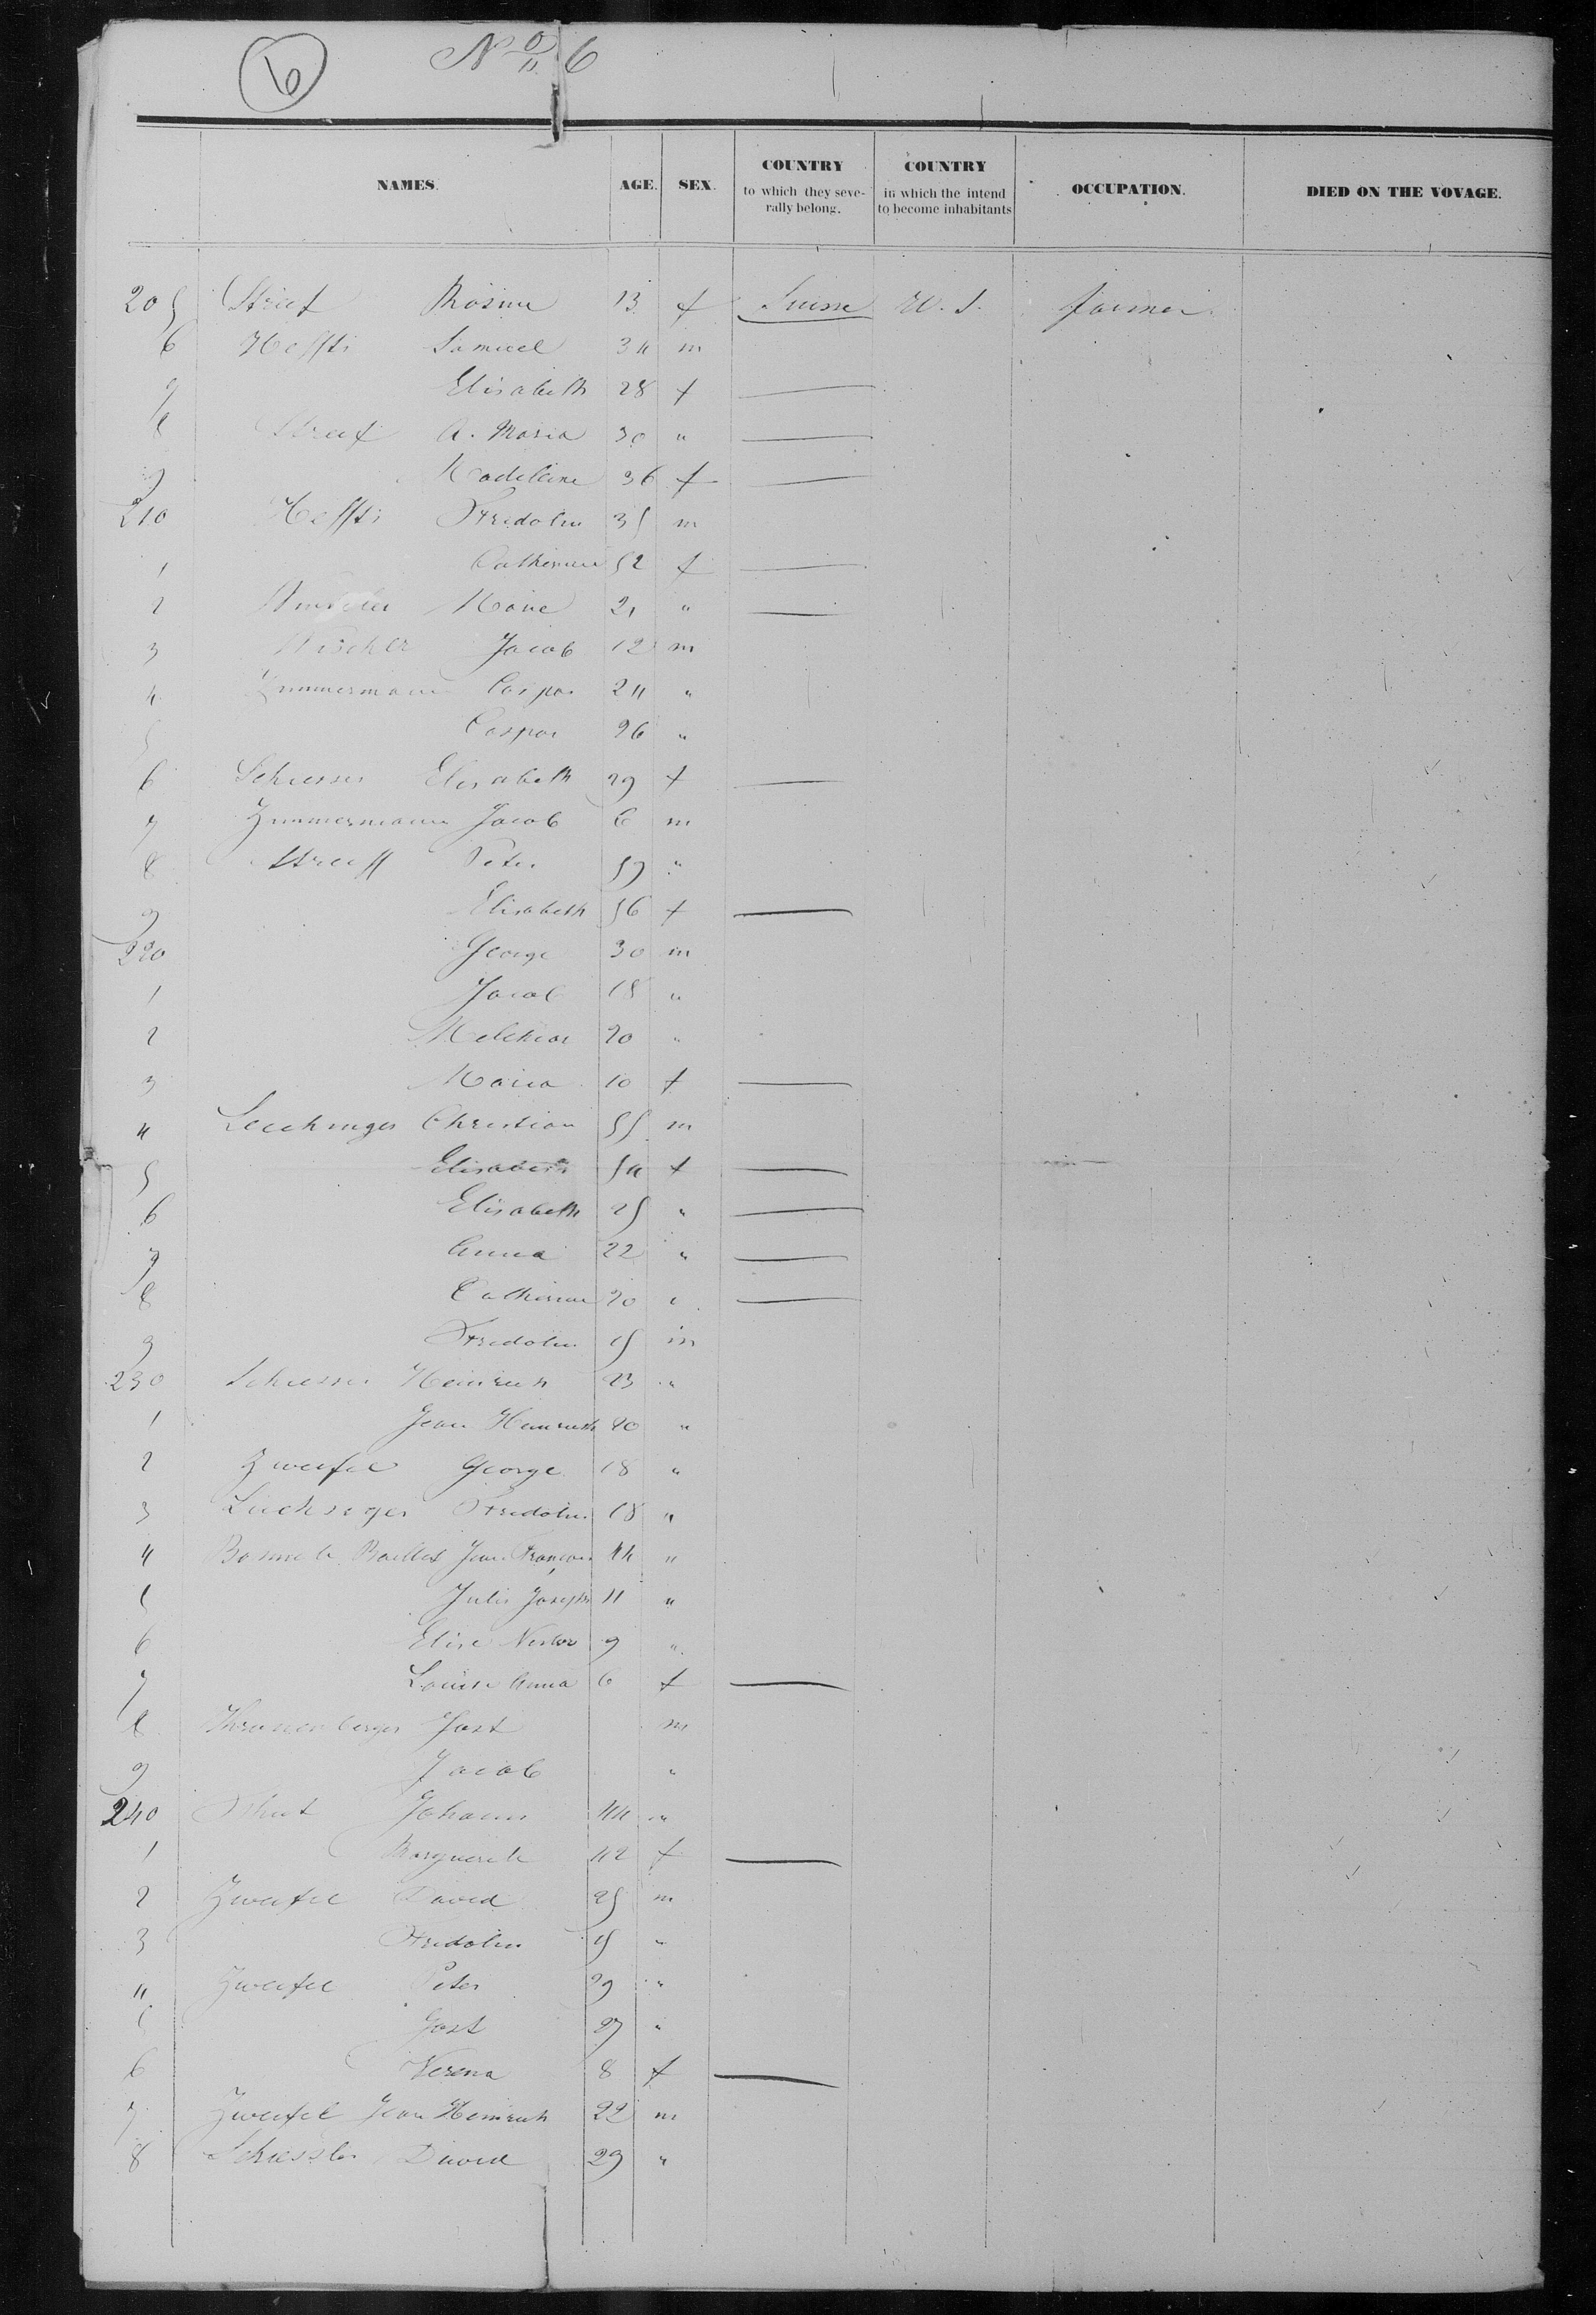 6 No 6
NAMES. AGE. SEX. COUNTRY to which they seve- rally belong. COUNTRY in which the intend to become inhabitants OCCUPATION. DIED ON THE VOVAGE.
205 Streif Rosina 13 f Suisse U. S. farmer
6 Heffti Samuel 34 m
7 Elisabeth 28 f
8 Streif A. Maria 30 "
9 Madeleine 36 f
210 Heffti Fridolin 35 m
1 Catherine 52 f
2 Marie 21 "
3 Jacob 12 m
4 Zimmermann Caspar 24 "
5 Caspar 26 "
6 Schiesser Elisabeth 29 f
7 Zimmermann Jacob 6 m
8 Streiff Peter 59 "
9 Elisabeth 56 f
220 George 30 m
1 Jacob 18 "
2 Melchior 20 "
3 Maria 10 f
4 Leuchinger Christian 55 m
5 Elisabeth 54 f
6 Elisabeth 25 "
7 Anna 22 "
8 Catherine 20 "
9 Fridolin 15 m
230 Schiesser Heinrich 23 "
1 Jean Heinrich 20 "
2 Zweifel George 18 "
3 Luchsiger Fridolin 18 "
4 Jean François 44 "
5 Julis Joseph 11 "
6 Elise Nestor 9 "
7 Louise Anna 6 f
8 Jost m
9 Jacob "
240 Johann 44 "
1 Marguerite 42 f
2 Zweifel David 25 m
3 Fridolin 15 "
4 Zweifel Peter 29 "
5 Jost 27 "
6 Verena 8 f
7 Zweifel Jean Heinrich 22 m
8 David 29 "